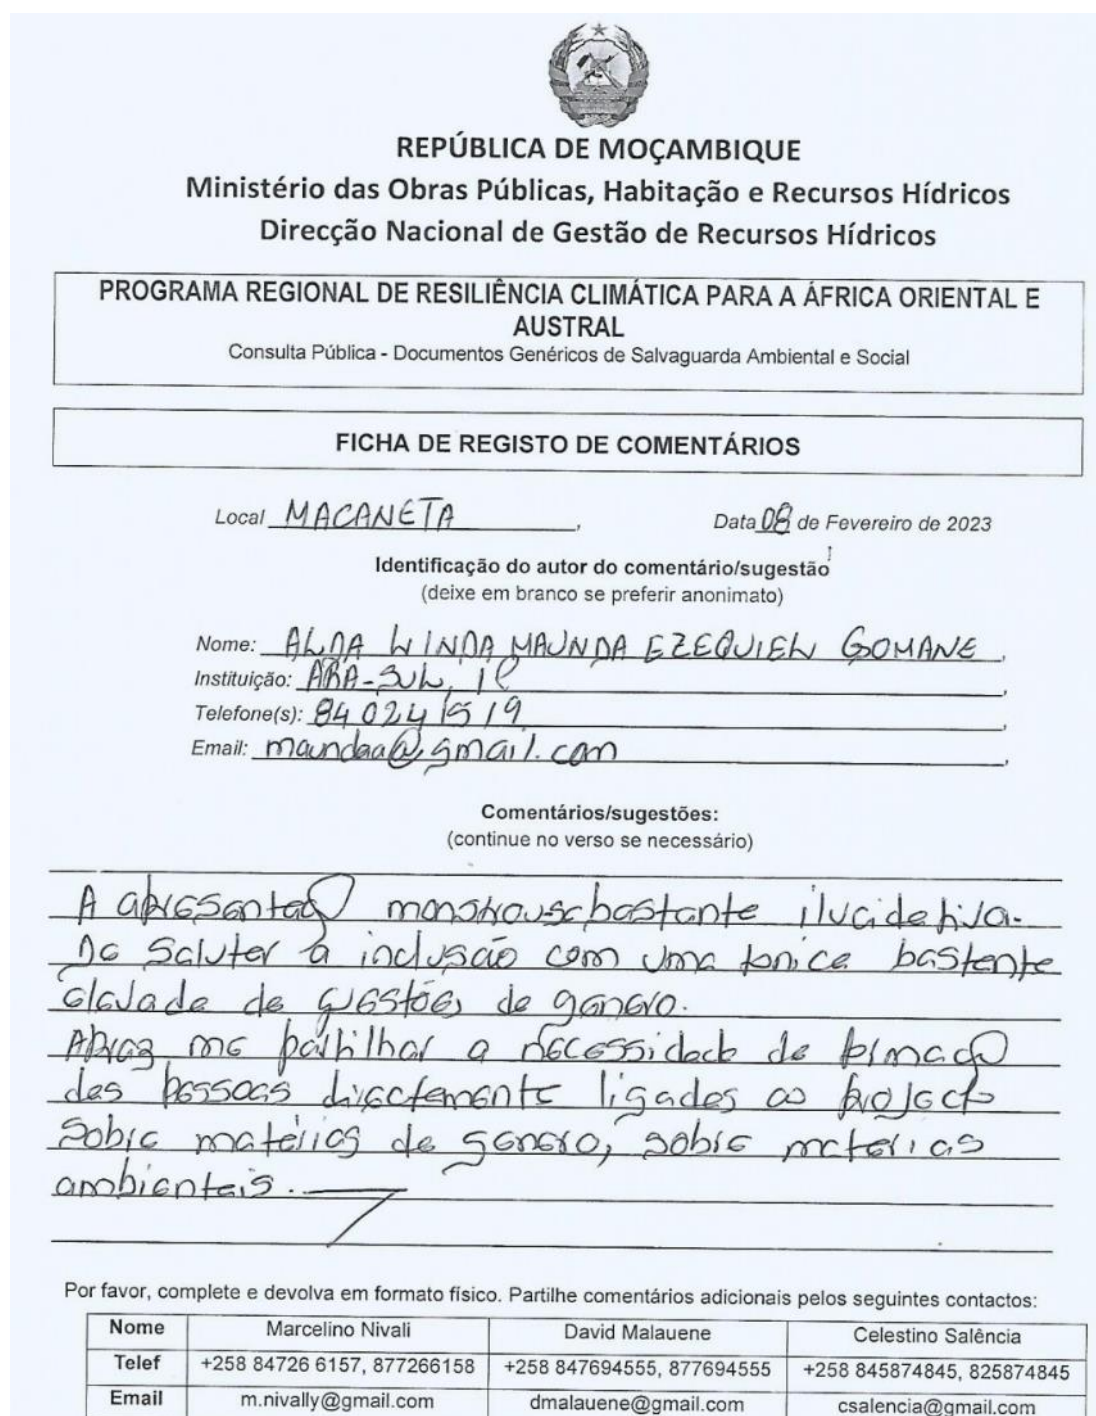 REPÚBLICA DE MOÇAMBIQUE
Ministério das Obras Públicas, Habitação e Recursos Hídricos
Direcção Nacional de Gestão de Recursos Hídricos
PROGRAMA REGIONAL DE RESILIÊNCIA CLIMÁTICA PARA A ÁFRICA ORIENTAL E
AUSTRAL
Consulta Pública - Documentos Genéricos de Salvaguarda Ambiental e Social
FICHA DE REGISTO DE COMENTÁRIOS
Local MACANETA, Data 08 de Fevereiro de 2023
Identificação do autor do comentário/sugestão
(deixe em branco se preferir anonimato)
Nome: ALDA LINDA MAUNDA EZEQUIEL GOMANE,
Instituição: ARA-SUL, IP,
Telefone(s): 84 024 1519,
Email: maundaa@gmail.com,
Comentários/sugestões:
(continue no verso se necessário)
A apresentação monstrou-se bastante ilucidativa.
De Salutar a inclusão com uma tonica bastante
elevada de questões de género.
Apraz me partilhar a necessidade de formação
das pessoas directamente ligadas ao projecto
sobre matérias de género, sobre matérias
ambientais.
Por favor, complete e devolva em formato físico. Partilhe comentários adicionais pelos seguintes contactos:
Nome Marcelino Nivali David Malauene Celestino Salência
Telef +258 84726 6157, 877266158 +258 847694555, 877694555 +258 845874845, 825874845
Email m.nivally@gmail.com dmalauene@gmail.com csalencia@gmail.com